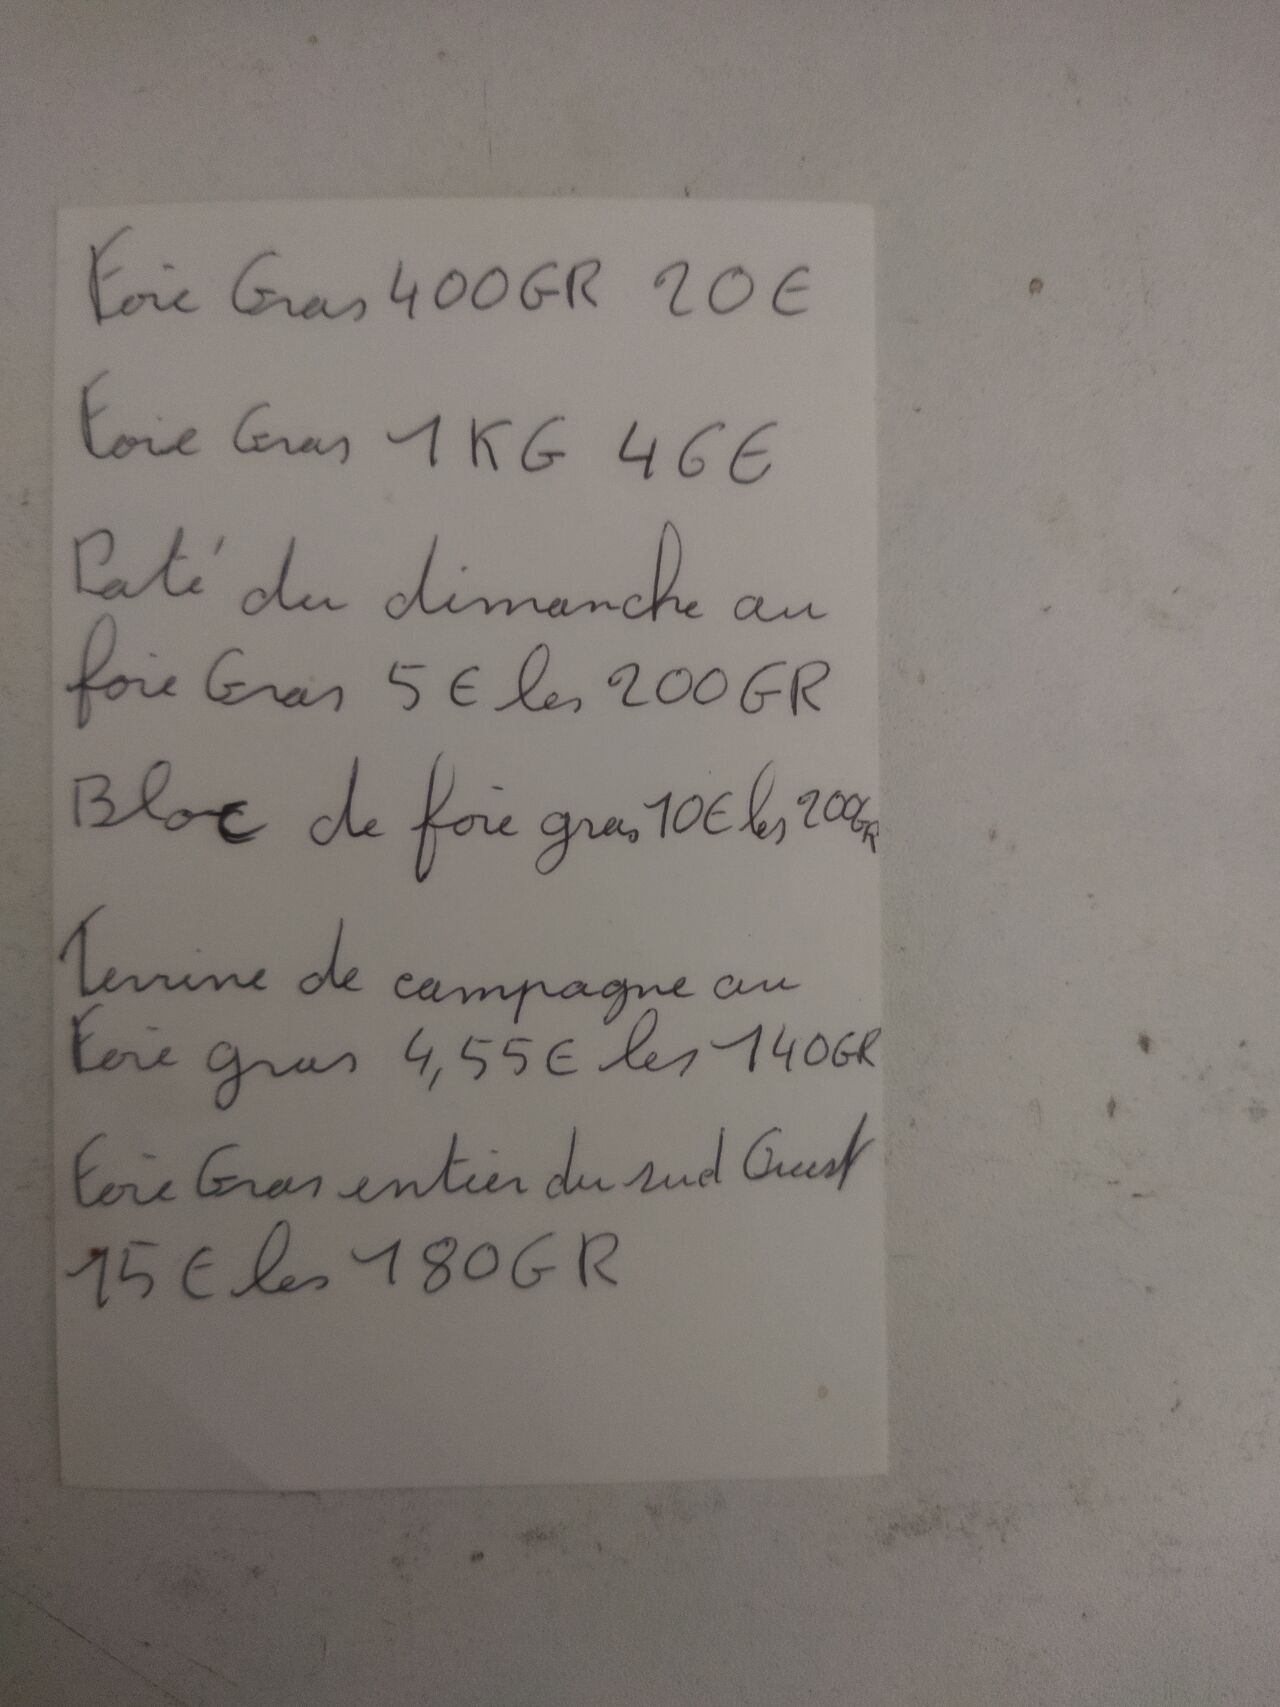 Foie Gras 400GR 20€
Foie Gras 1KG 46€
Paté du dimanche au
foie Gras 5€ les 200GR
Bloc de foie gras 10€ les 200GR
Terrine de campagne au
Foie gras 4,55€ les 140GR
Foie Gras entier du sud Ouest
15€ les 180GR